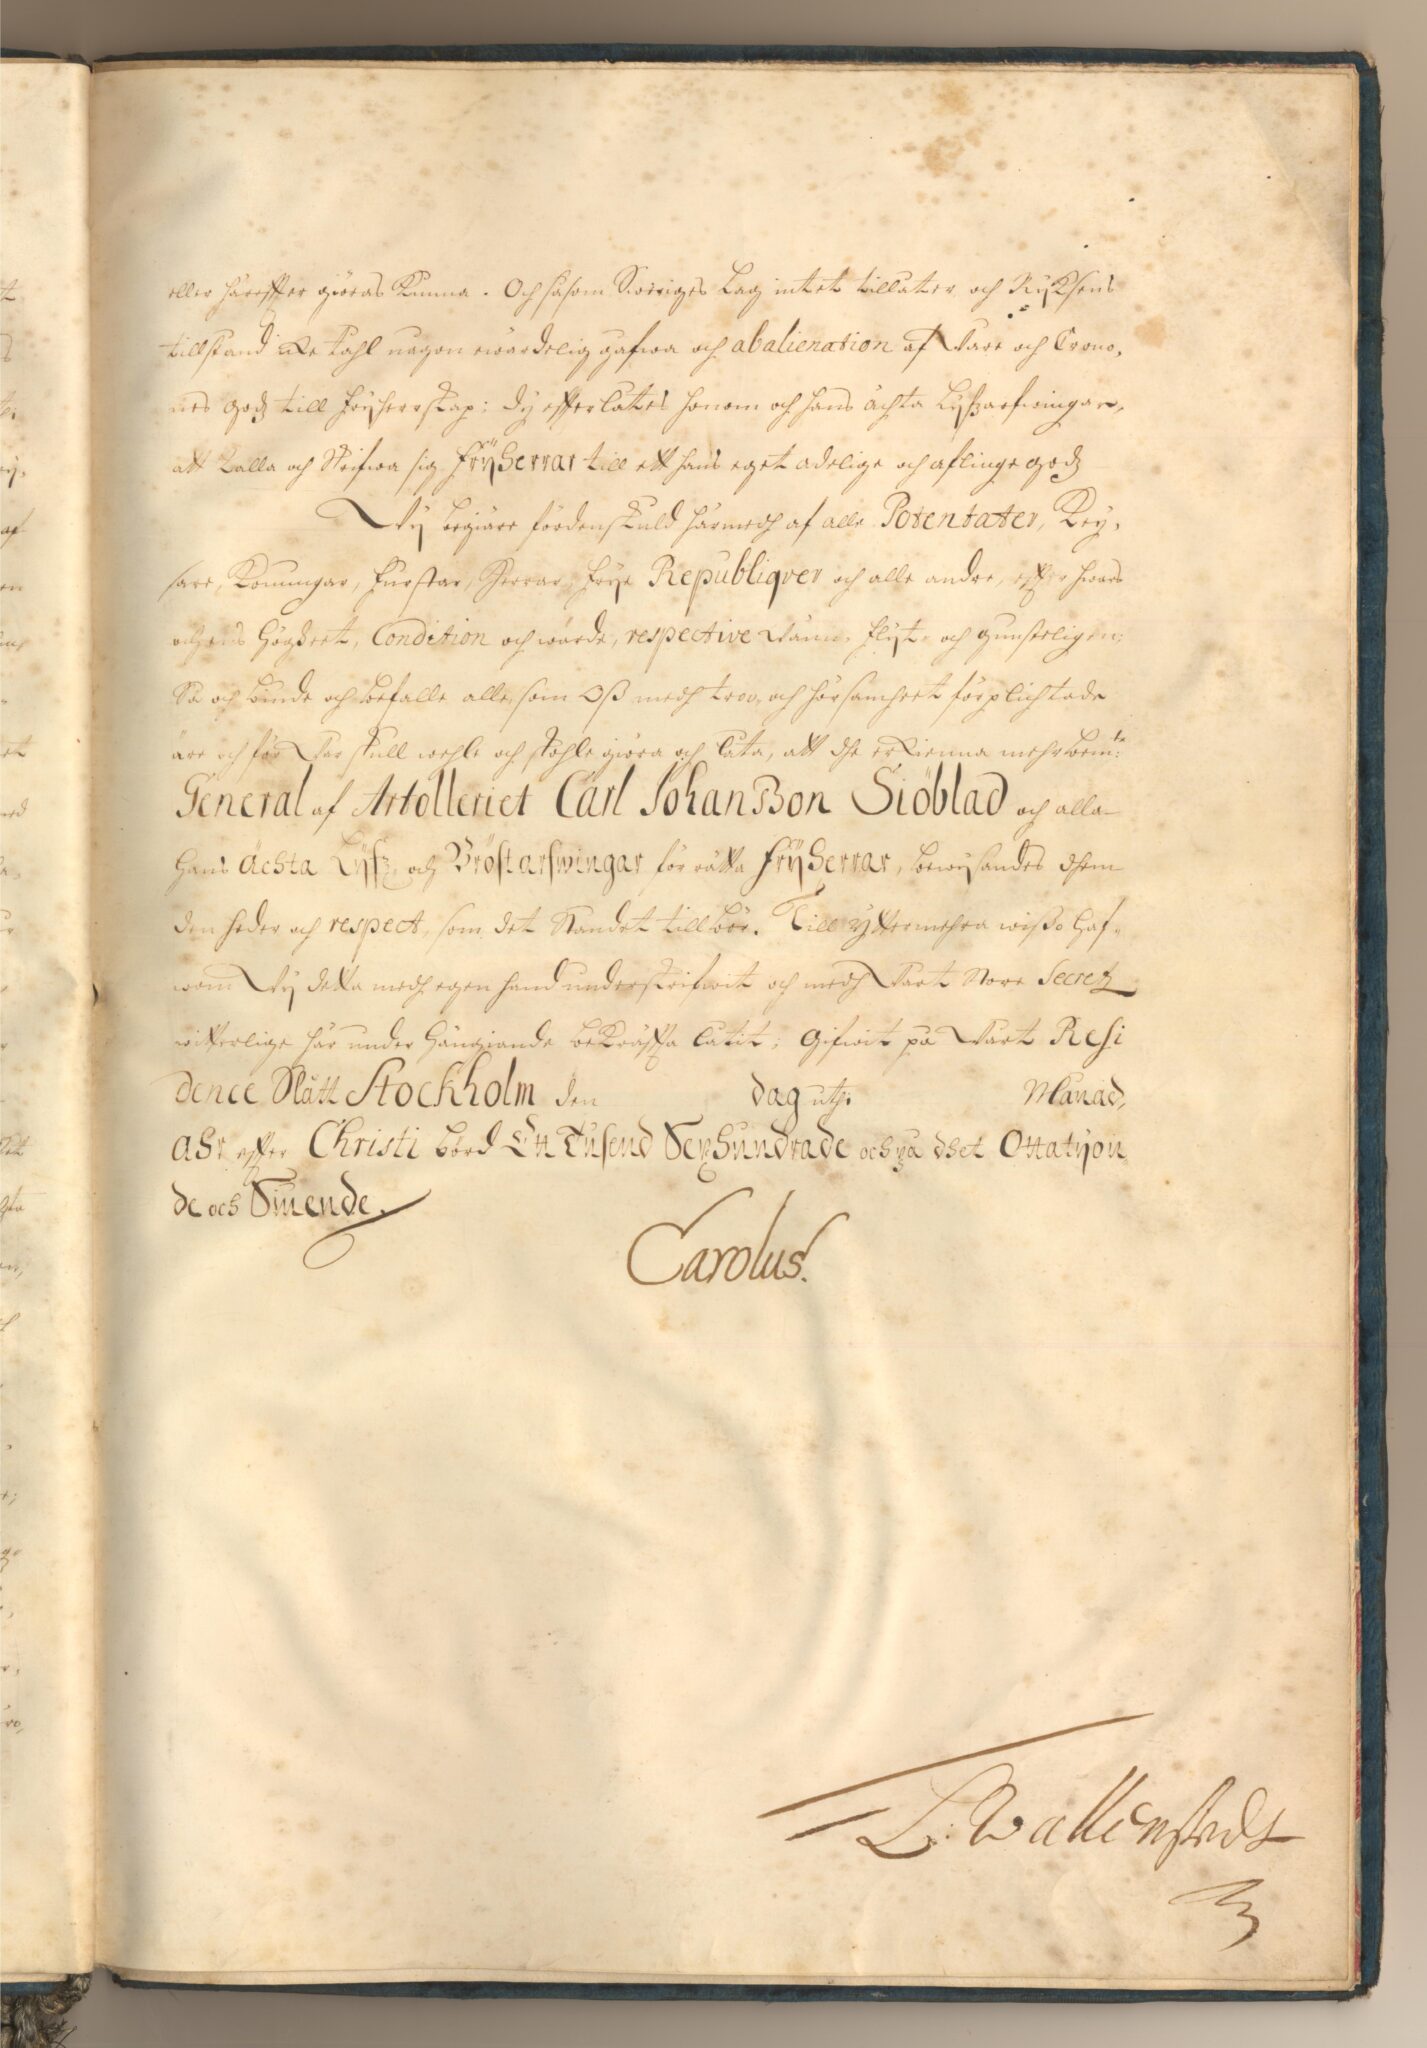 eller häreffter giöras kunna. Och såsom Sweriges Lag intet tillåter, och Rijksens
tillstånd ike tåhl någon ewärdelig gåfwa och abalienation af Wåre och Crono,
nes godz till Frijherrskap: Dy efferlåtes honom och hans ächta Lijfzarfwingar,
att kalla och skrifwa sig FrijHerrar till ett hans eget adelige och aflinge godz
Wij begiäre fördenskuld härmedh af alle Potentater, Key,
sare, Konungar, Furstar, Herrar, frije Republiqver och alle andre, effter hwars
och ens Högheet, Condition och wärde, respective Wänn, flijt, och gunsteligen:
Så och biude och befalle alle, som Oß medh troo, och hörsamheet förplichtade
äre och för Wår skull wehle och skohle giöra och låta, att dhe erkienna mehrbem:te
General af Artolleriet Carl Johanßon Siöblad och alla
Hans Ächta Lijfz, och Bröstarfwingar för rätta FrijHerrar, bewijsandes dhem
den heder och respect, som detStåndet tillbör. Till yttermehra wiße Haf-
wom Wij detta medh egen hand underskrifwit och medh Wårt Store Secretz
witterlige här under Hängiande bekräffta låtit; Gifwit på Wårt Resi
dence Slått Stockholm den dag uthj Månad,
åhr effter Christi börd Ett Tusend Sexhundrade och på dhet Ottatijon
de och Siuende.
Carolus.
L. Wallenstedt